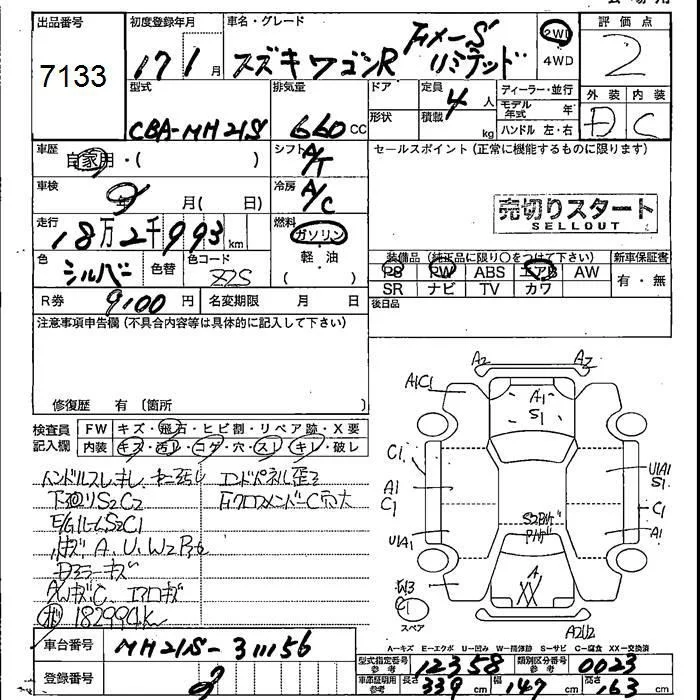 出品番号 初度登録年月 車名・グレード 評価点
7133 17 1月 スズキ ワゴンR FXーS リミテッド 2WD 4WD 2
型式 排気量 ドア 定員 ディーラー・並行 外装 内装
CBA-MH21S 660cc 形状 4人 積載 kg モデル年式 年 ハンドル 左・右 D C
車歴 自家用・( ) シフト A/T セールスポイント (正常に機能するものに限ります)
車検 年 月( 日) 冷房 A/C
売切りスタート
SELLOUT
走行 18万2千993km 燃料 ガソリン 軽・油
装備品 (純正品に限り○をつけて下さい) 新車保証書
色 シルバー 色替 色コード Z2S PS PW ABS エアB AW 有・無
SR ナビ TV カワ
R券 9100円 名変期限 月 日 後日品
注意事項申告欄 (不具合内容等は具体的に記入して下さい)
修復歴 有 (箇所 )
検査員記入欄 FW キズ・飛石・ヒビ割・リペア跡・X要
内装 キズ・汚し・コゲ・穴・スレ・キレ・破レ
ハンドルスレ キレ エンドパネル歪
下廻りS2C2
E/GルームS2C1
キズ A、U、W2
ドアミラーキズ
AWキズC
182994K
A2 A2
A1C1 A1
S1
C1 U1A1
S1
A1
C1 C1
S2
U1A1 A1
W3
C1 A
XX
スペア A2U2
A-キズ E-エクボ U-凹み W-補修跡 S-サビ C-腐食 XX-交換済
車台番号 MH21S-311156
型式指定番号 参考 12358 類別区分番号 参考 0023
登録番号 2 車庫証明用 参考 長さ 339cm 幅 147cm 高さ 163cm